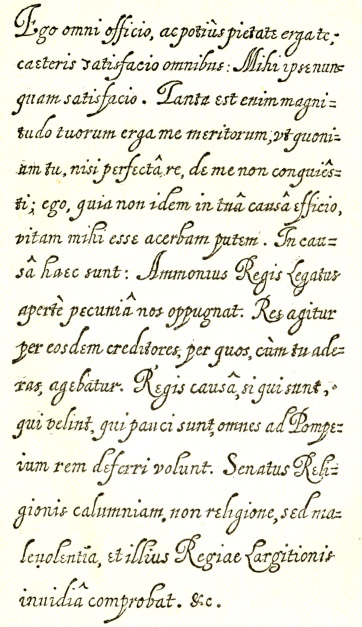 Ego omni officio, ac potiùs pietate erga te;
caeteris satisfacio omnibus: Mihi ipse nun=
quam satisfacio. Tanta est enim magni=
tudo tuorum erga me meritorum, vt quoni=
am tu, nisi perfectâ re, de me non conquiês=
ti; ego, quia non idem in tuâ causâ efficio,
vitam mihi esse acerbam putem. In cau=
sâ haec sunt: Ammonius Regis Legatus
apertè pecuniâ nos oppugnat. Res agitur
per eosdem creditores, per quos, cùm tu ade=
ras, agebâtur. Regis causâ, si qui sunt,
qui velint, qui pauci sunt, omnes ad Pompe=
ium rem deferri volunt. Senatus Reli=
gionis calumniam, non religione, sed ma=
levolentia, et illius Regiae Largitionis
inuidiâ comprobat. &c.